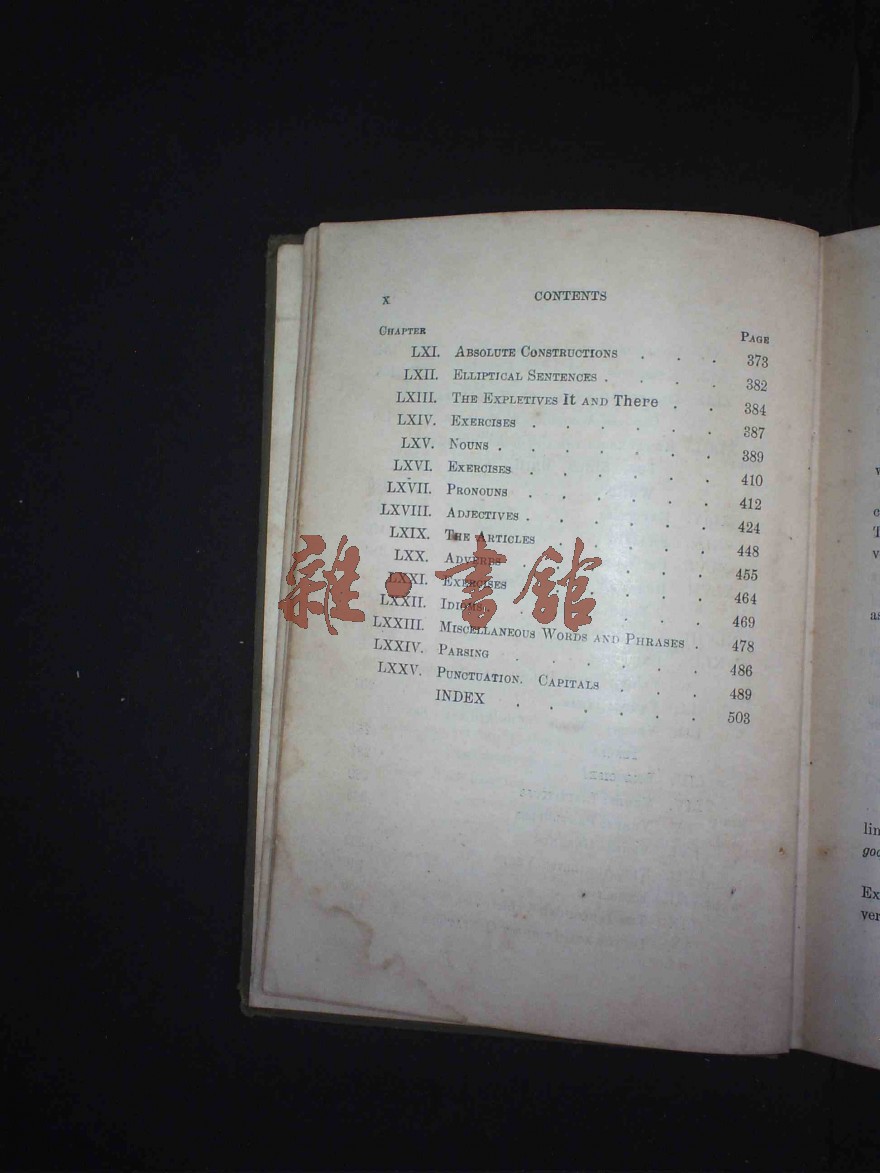 x CONTENTS
CHAPTER PAGE
LXI. ABSOLUTE CONSTRUCTIONS . . . 373
LXII. ELLIPTICAL SENTENCES . . . . 382
LXIII. THE EXPLETIVES It AND There . . 384
LXIV. EXERCISES . . . . . . 387
LXV. NOUNS . . . . . . . 389
LXVI. EXERCISES . . . . . . 410
LXVII. PRONOUNS . . . . . . 412
LXVIII. ADJECTIVES . . . . . . 424
LXIX. THE ARTICLES . . . . . 448
LXX. ADVERBS . . . . . . 455
LXXI. EXERCISES . . . . . . 464
LXXII. IDIOMS . . . . . . 469
LXXIII. MISCELLANEOUS WORDS AND PHRASES . 478
LXXIV. PARSING . . . . . . 486
LXXV. PUNCTUATION. CAPITALS . . . 489
INDEX . . . . . . 503
雜·書館